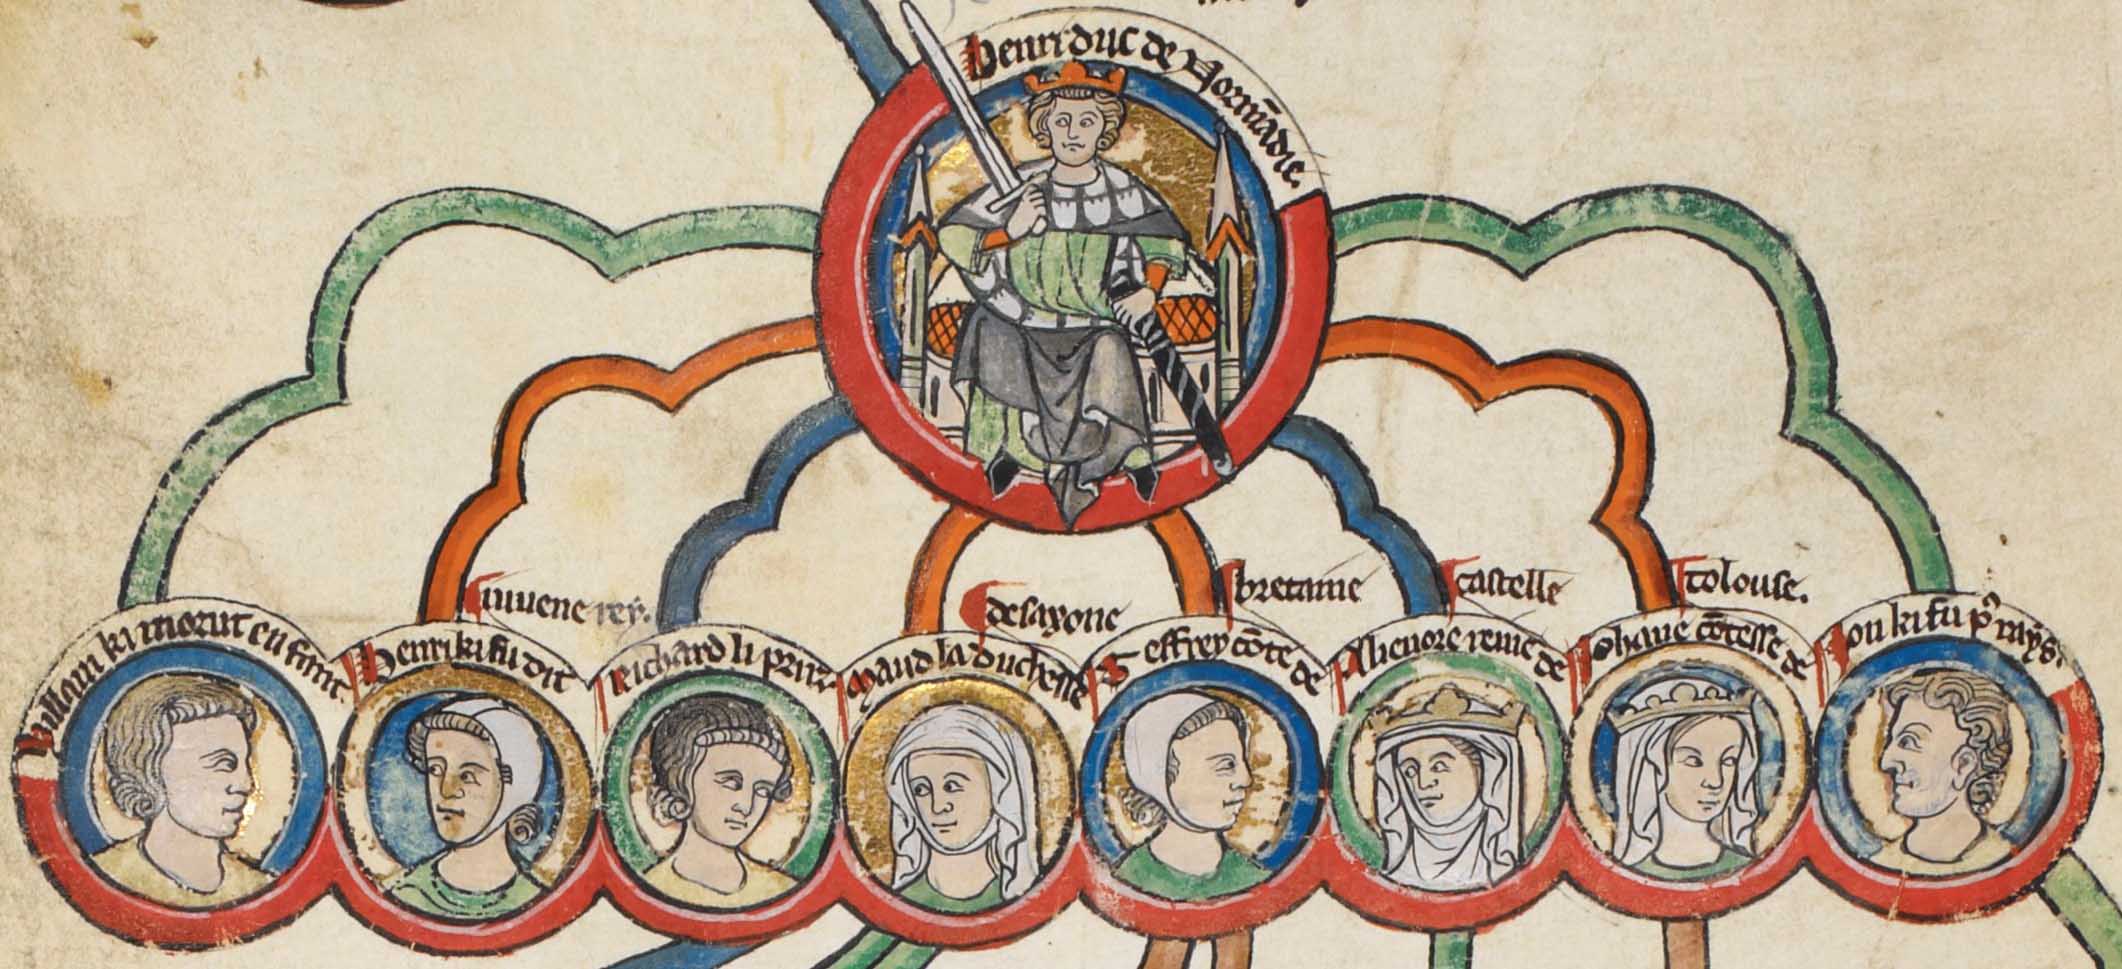 Henri duc de Normãdie.
Willam ki morut en fant
Henri ki fu dit
iuuene rey.
Richard li prinz
Maud la duchesse
de saxone
Geffrey cõte de
bretaine
Alienore reine de
castelle
Iohane cõtesse de
tolouse.
Ion ki fu pꝰ rays.